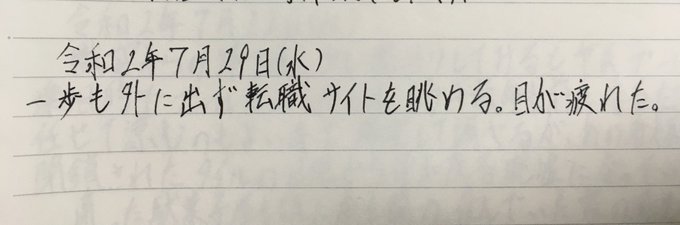 令和2年7月29日(水)
一歩も外に出ず転職サイトを眺める。目が疲れた。